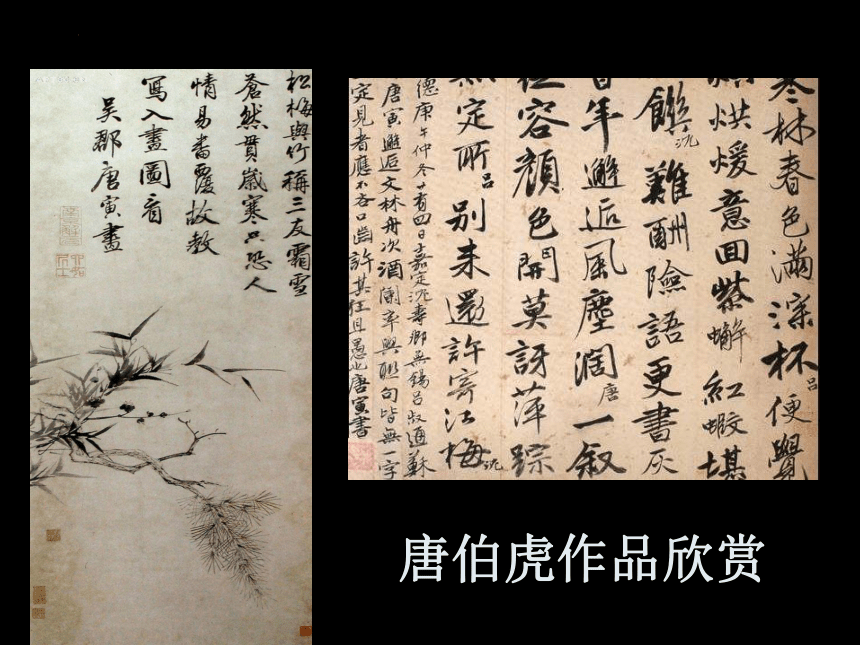 松梅與竹稱三友霜雪
蒼然貫歲寒只恐人
情易番覆故教
寫入畫圖看
吳郡唐寅畫
林春色滿深杯呂便覺
烘煖意回紫蠏紅蝦堪
饌沈難酬險語更書灰
百年邂逅風塵濶唐一叙
從容顏色開莫訝萍踪
無定所呂別來還許寄江梅沈
德庚午仲冬廿有四日嘉定沈壽卿無錫呂叔通蘇
唐寅邂逅文林舟次酒闌率興聯句皆無一字
定見者應不吝口齒許其狂且愚也唐寅書
唐伯虎作品欣赏